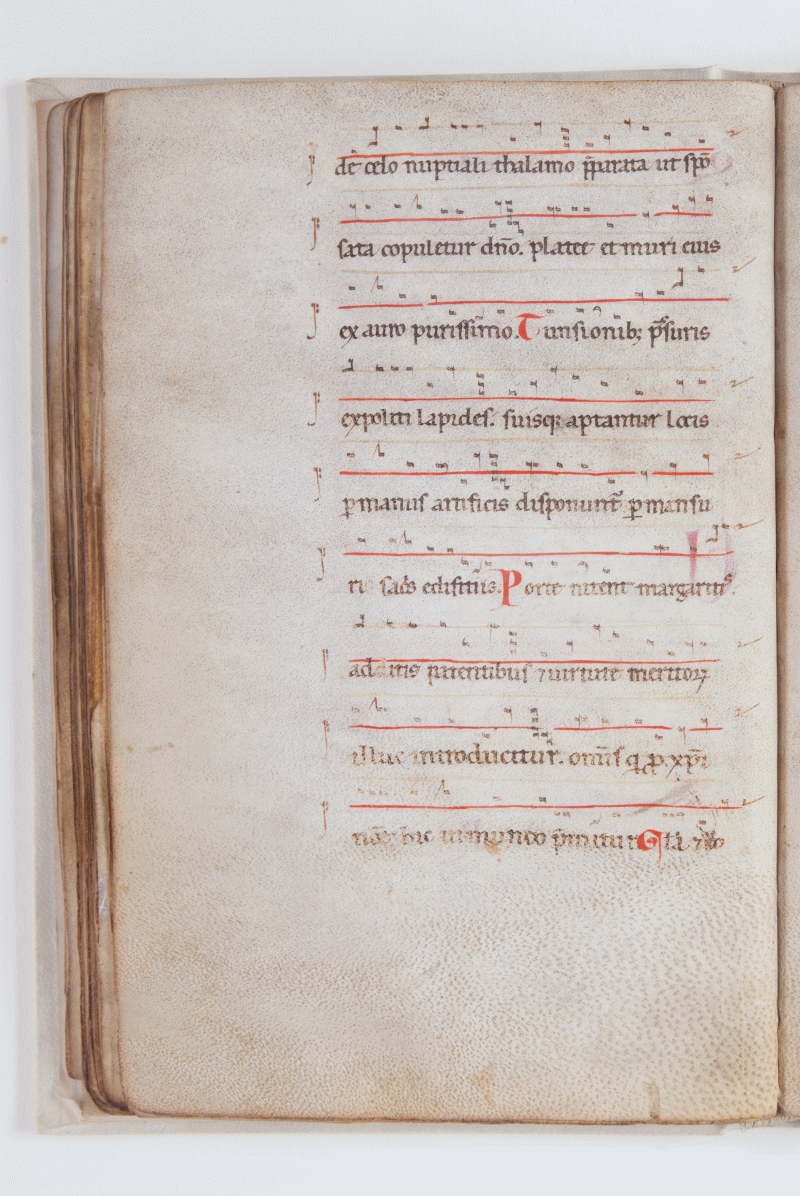 de celo nuptiali thalamo p̄parata ut spō
sata copuletur dn̄o. platee et muri eius
ex auro purissimo. Tunsionib; p̄ssuris
expoliti lapides. suisq; aptantur locis
ꝑ manus artificis disponunt̄ ꝑ mansu
ri sac̄s edificiis. Porte nitent margaritis.
aditis patentibus ⁊ uirtute meritoꝝ
illuc introducitur. om̄is q̄ ꝓ xp̄i
hic in mundo p̄mitur Gla